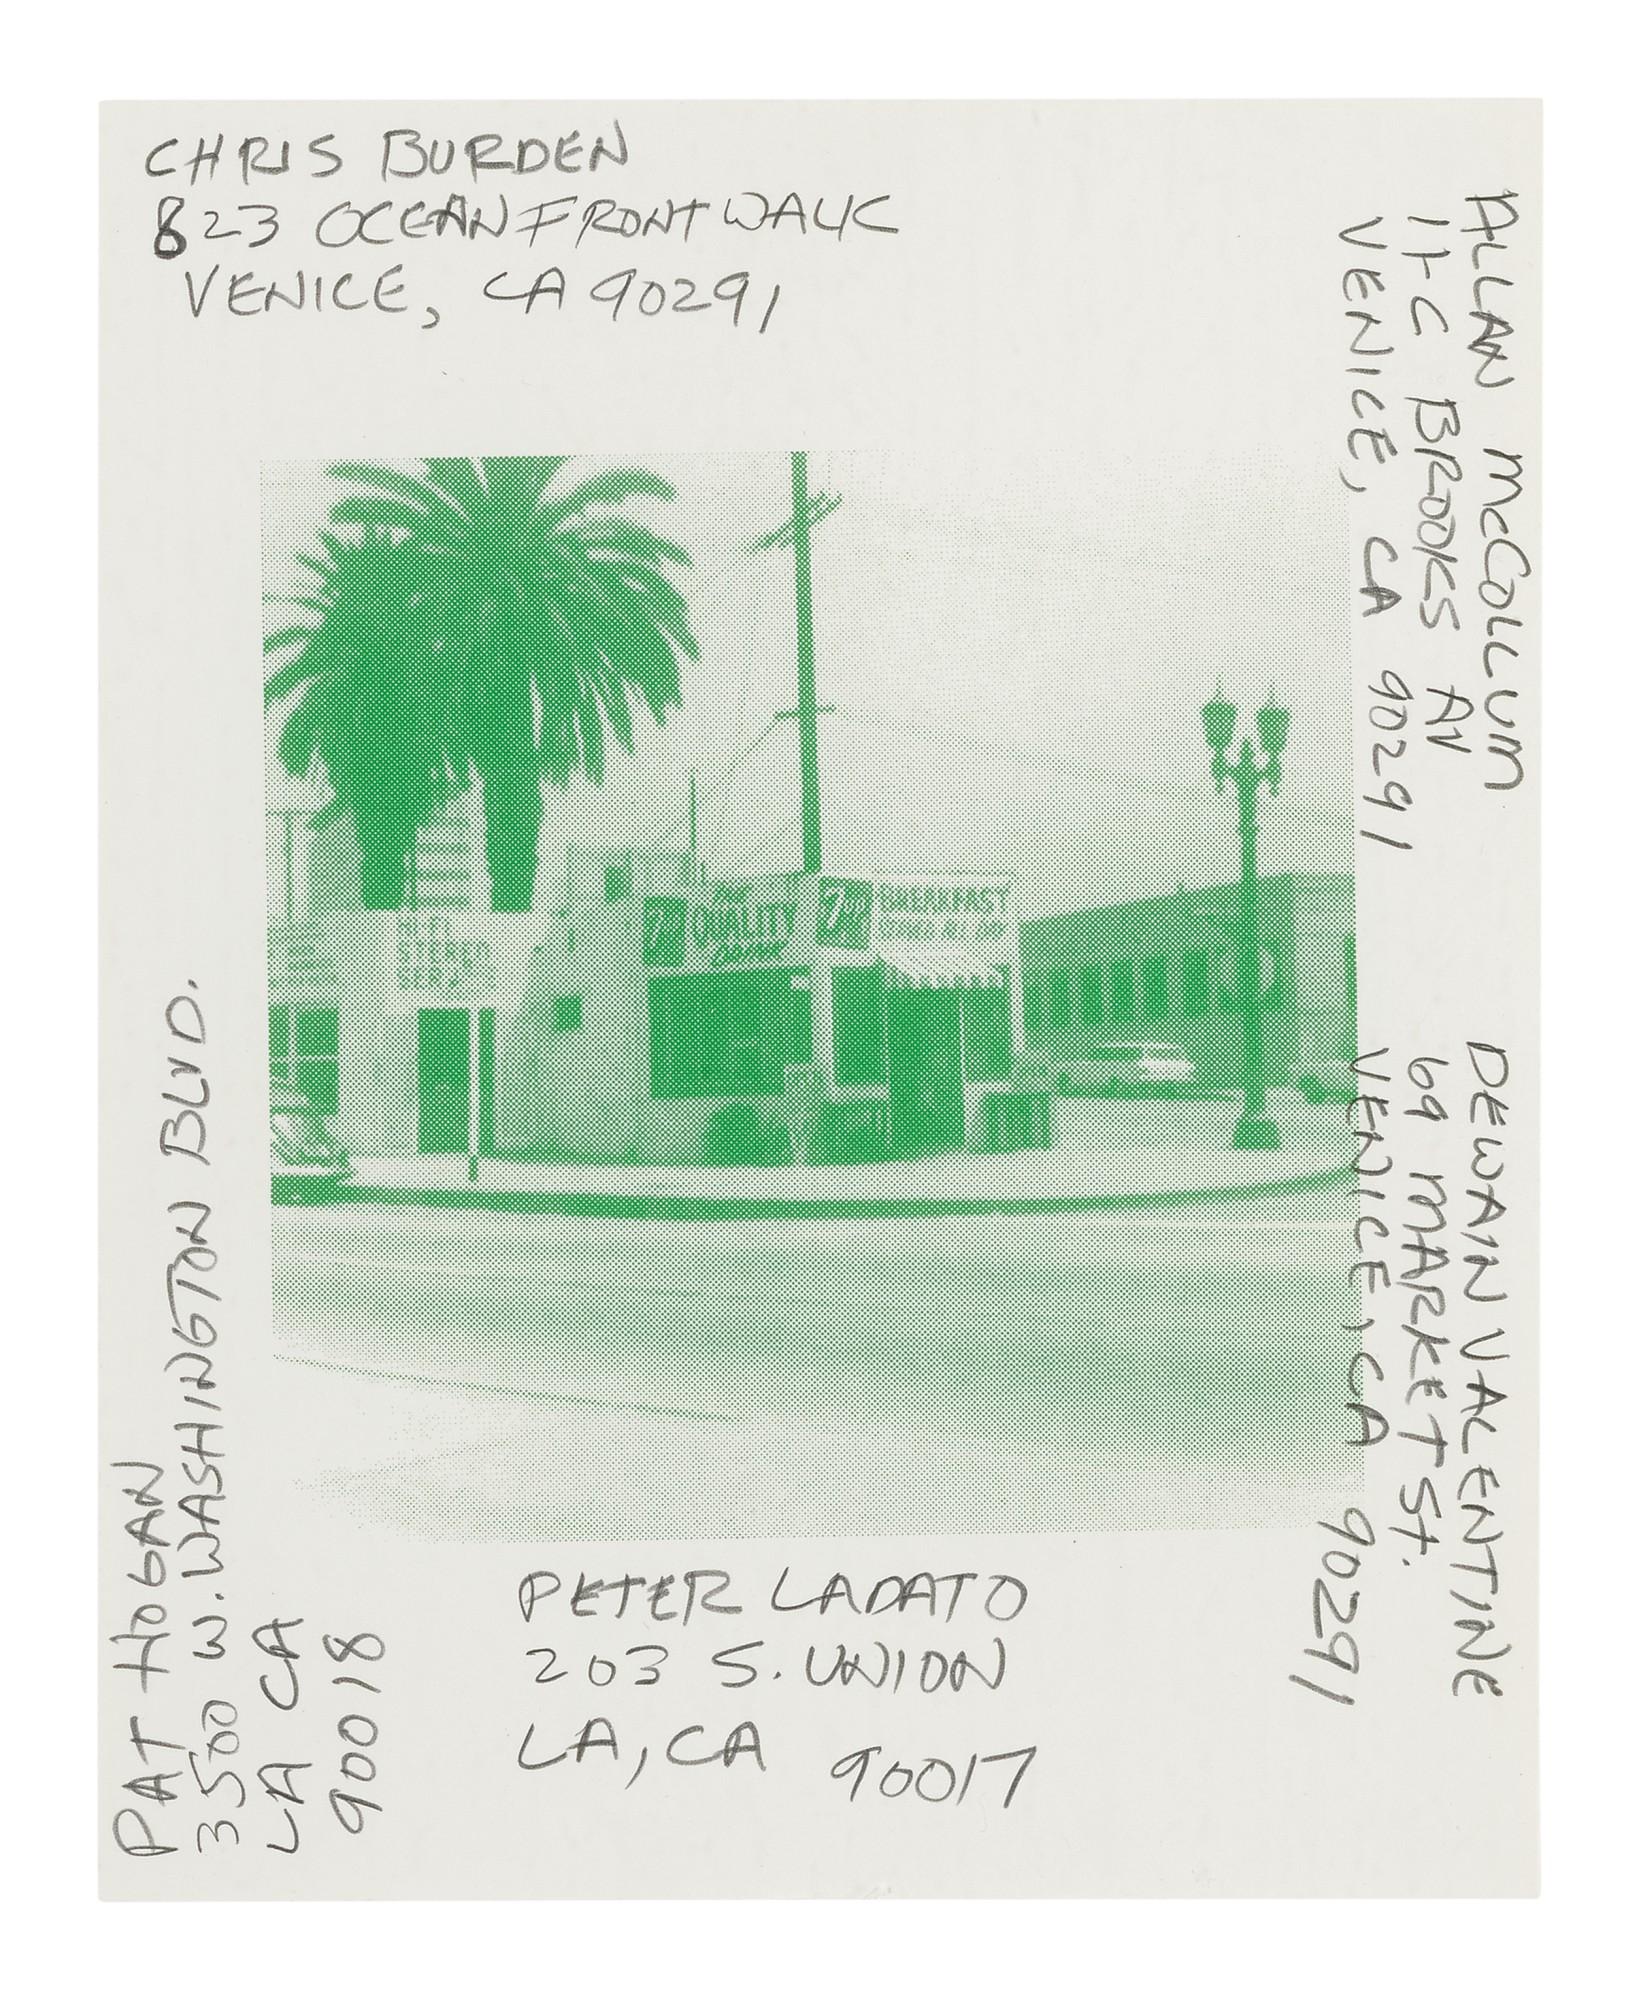 CHRIS BURDEN
823 OCEAN FRONT WALK
VENICE, CA 90291
ALLAN McCOLLUM
11-C BROOKS AV
VENICE, CA 90291
HI-FI
STEREO
SERVICE
7up
THE
QUALITY
DRINK
7up
BREAKFAST
SERVED ALL DAY
DEWAIN VALENTINE
69 MARKET St.
VENICE, CA 90291
PAT HOGAN
3500 W. WASHINGTON BLVD.
LA CA
90018
PETER LADATO
203 S. UNION
LA, CA 90017